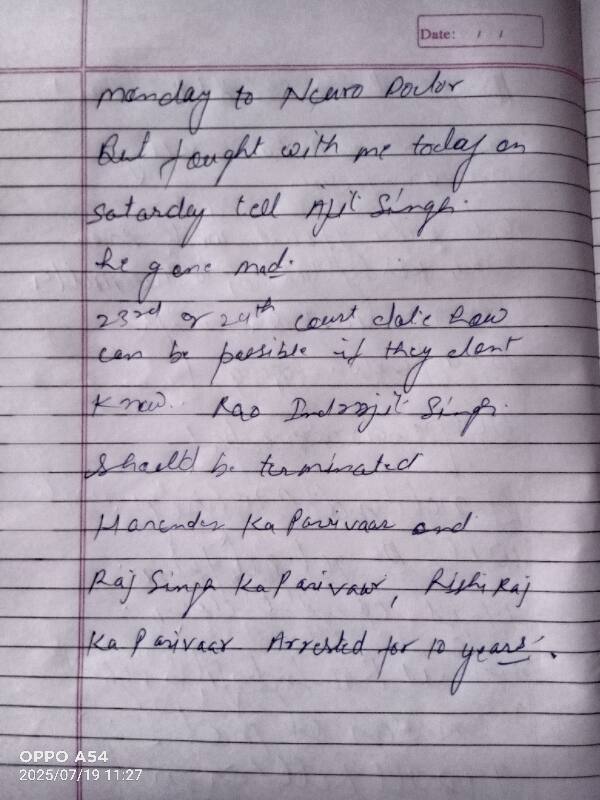 Date: / /
Monday to Neuro Doctor
But fought with me today on
Saturday tell Ajit Singh.
he gone mad.
23rd or 24th court date how
can be possible if they dont
know. Rao Indrajit Singh
should be terminated
Harender Ka Parivaar and
Raj Singh Ka Parivaar, Rishi Raj
Ka Parivaar Arrested for 10 years.
OPPO A54
2025/07/19 11:27